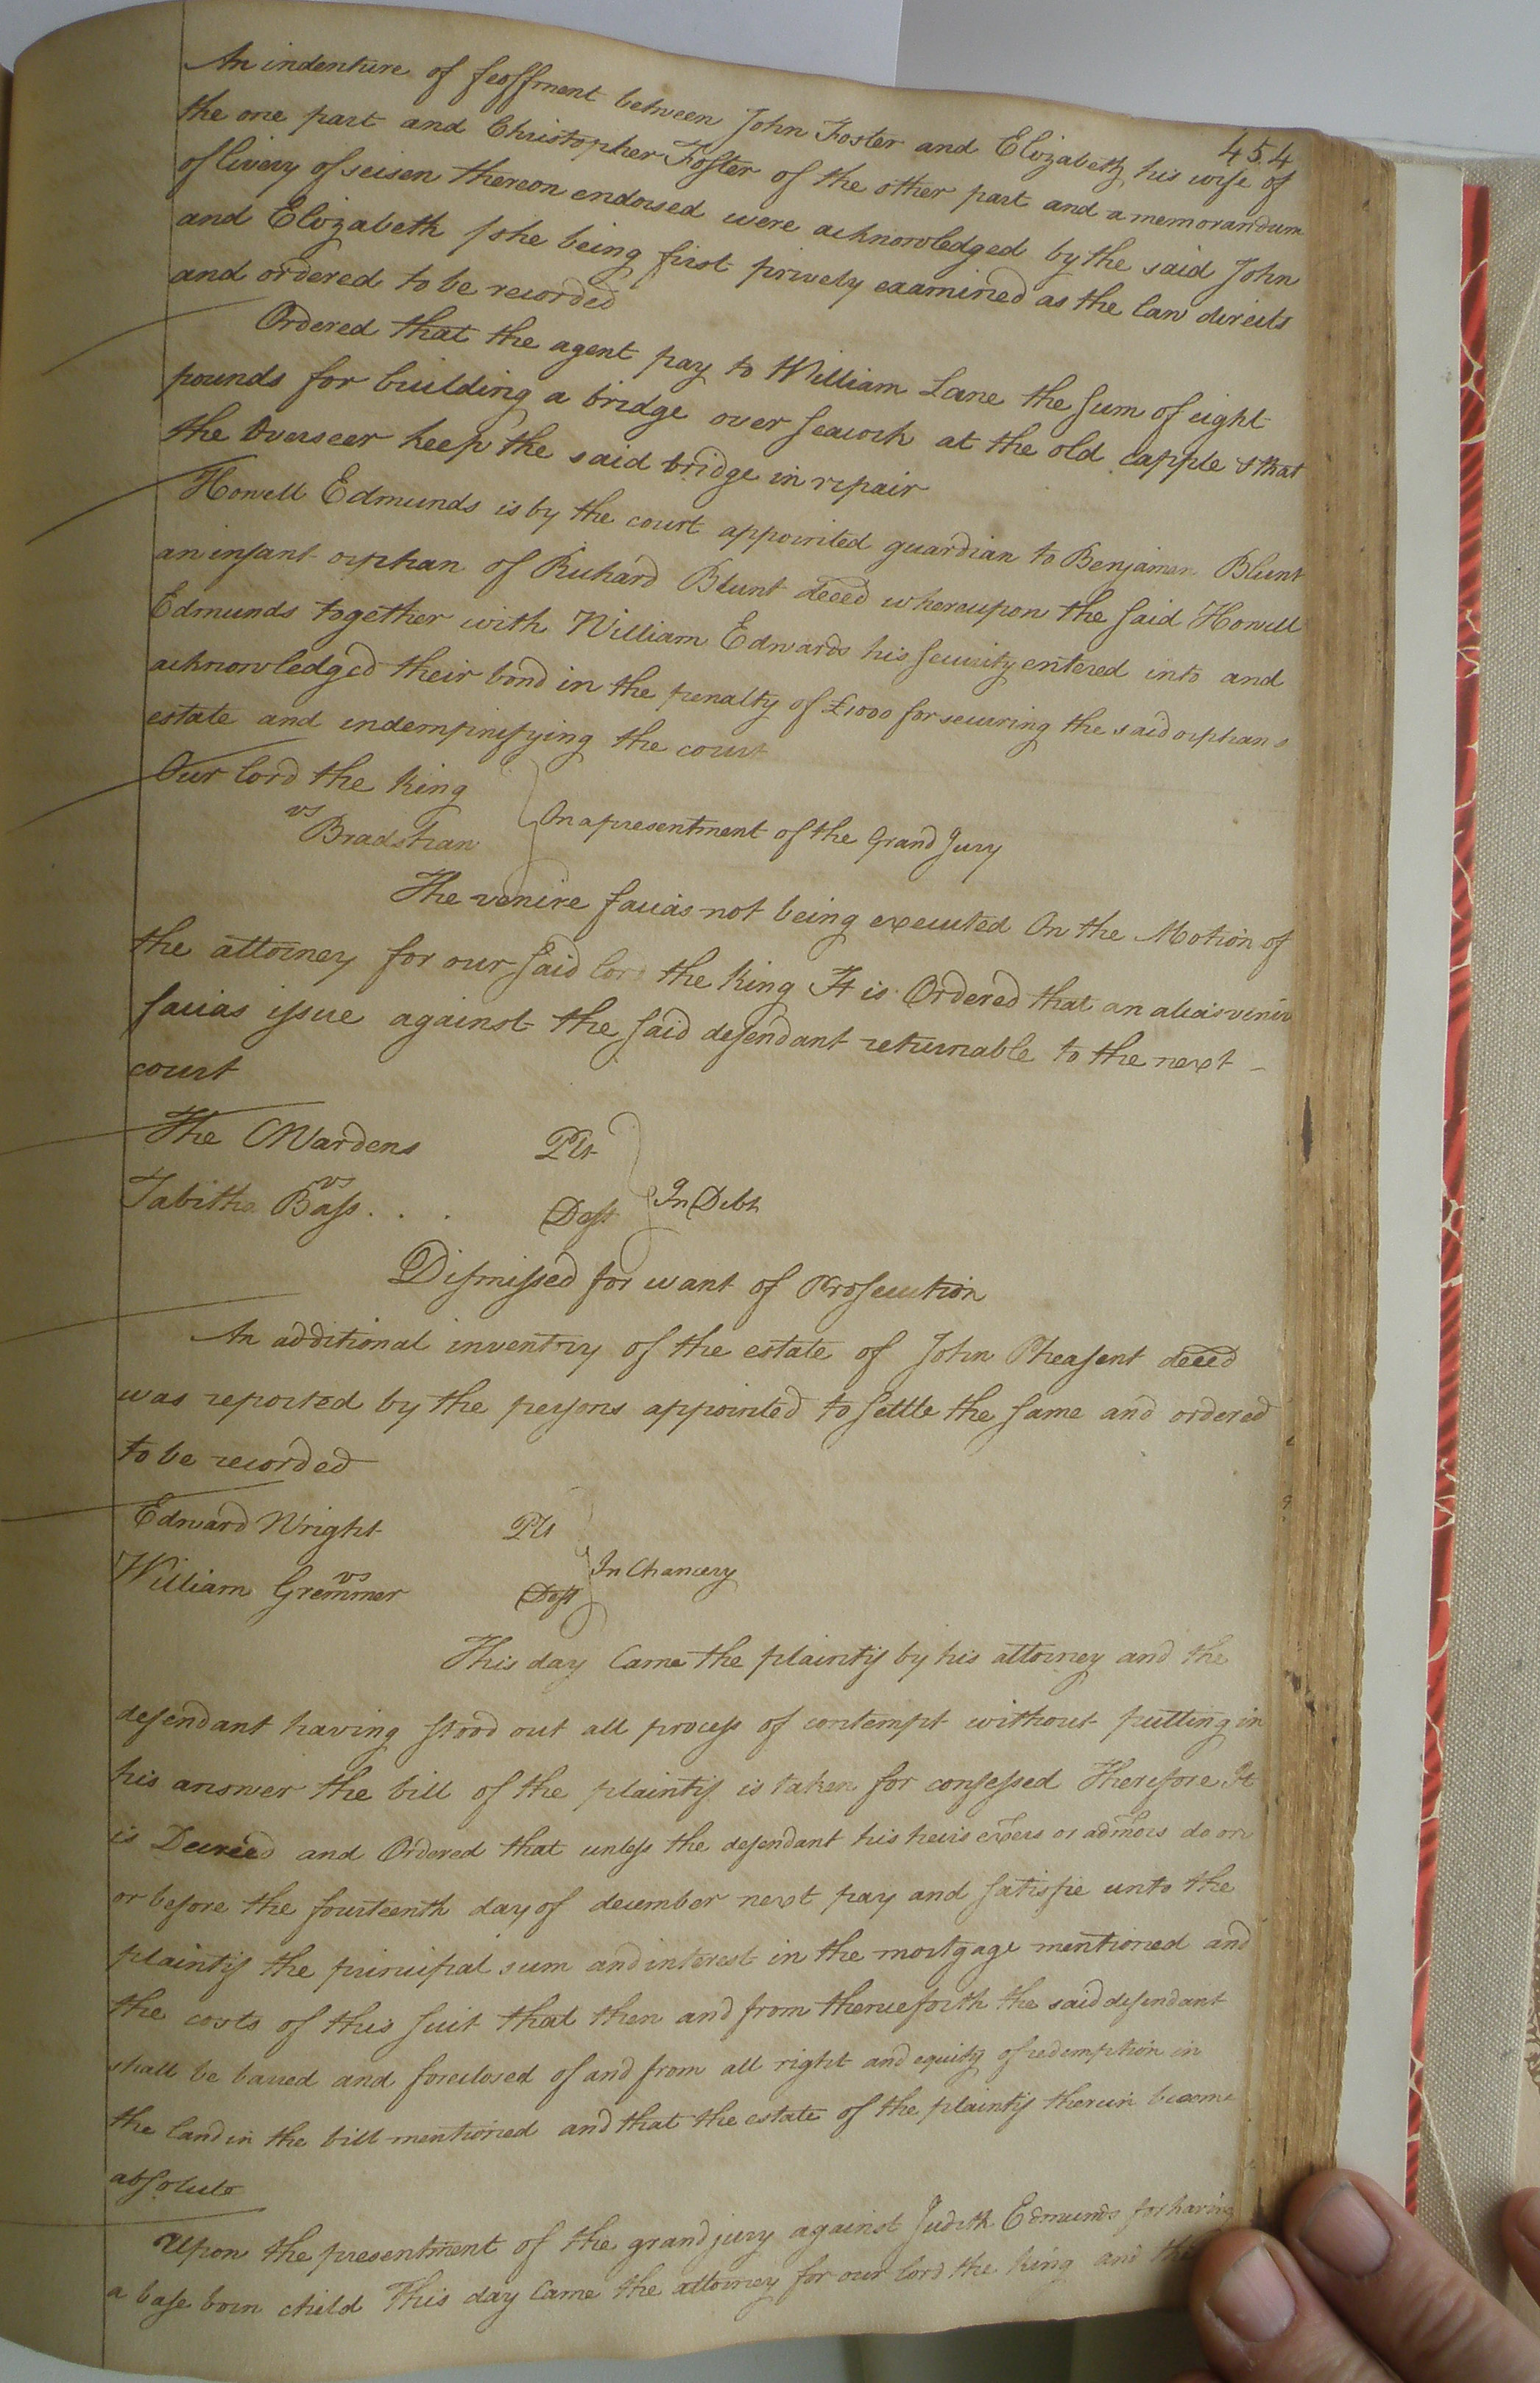 454
An indenture of feoffment between John Foster and Elizabeth his wife of
the one part and Christopher Foster of the other part and a memorandum
of livery of seisen thereon endorsed were acknowledged by the said John
and Elizabeth she being first prively examined as the law directs
and ordered to be recorded
Ordered that the agent pay to William Lane the sum of eight
pounds for building a bridge over Seacock at the old capple & that
the Overseer keep the said bridge in repair
Howell Edmunds is by the court appointed guardian to Benjamen Blunt
an infant orphan of Richard Blunt deced whereupon the said Howell
Edmunds together with William Edwards his security entered into and
acknowledged their bond in the penalty of £1000 for securing the said orphans
estate and indempnifying the court
Our lord the King
vs
Bradshan
On a presentment of the Grand Jury
The venire facias not being executed On the Motion of
the attorney for our said lord the King It is Ordered that an alias venire
facias issue against the said defendant returnable to the next
court
The CWardens Plt
vs
Tabitha Bass . . . Deft
In Debt
Dismissed for want of Prosecution
An additional inventry of the estate of John Pheasent deced
was reported by the persons appointed to settle the same and ordered
to be recorded
Edward Wright Plt
vs
William Gremmer Deft
In Chancery
This day Came the plaintif by his attorney and the
defendant having stood out all process of contempt without putting in
his answer the bill of the plaintif is taken for confessed Therefore It
is Decreed and Ordered that unless the defendant his heirs exers or admors do on
or before the fourteenth day of december next pay and satisfie unto the
plaintif the principal sum and interest in the mortgage mentioned and
the costs of this suit that then and from thenceforth the said defendant
shall be barred and foreclosed of and from all right and equity of redemption in
the land in the bill mentioned and that the estate of the plaintif therein become
absolute
Upon the presentment of the grand jury against Judith Edmunds for having
a base born child This day Came the attorney for our lord the King and the